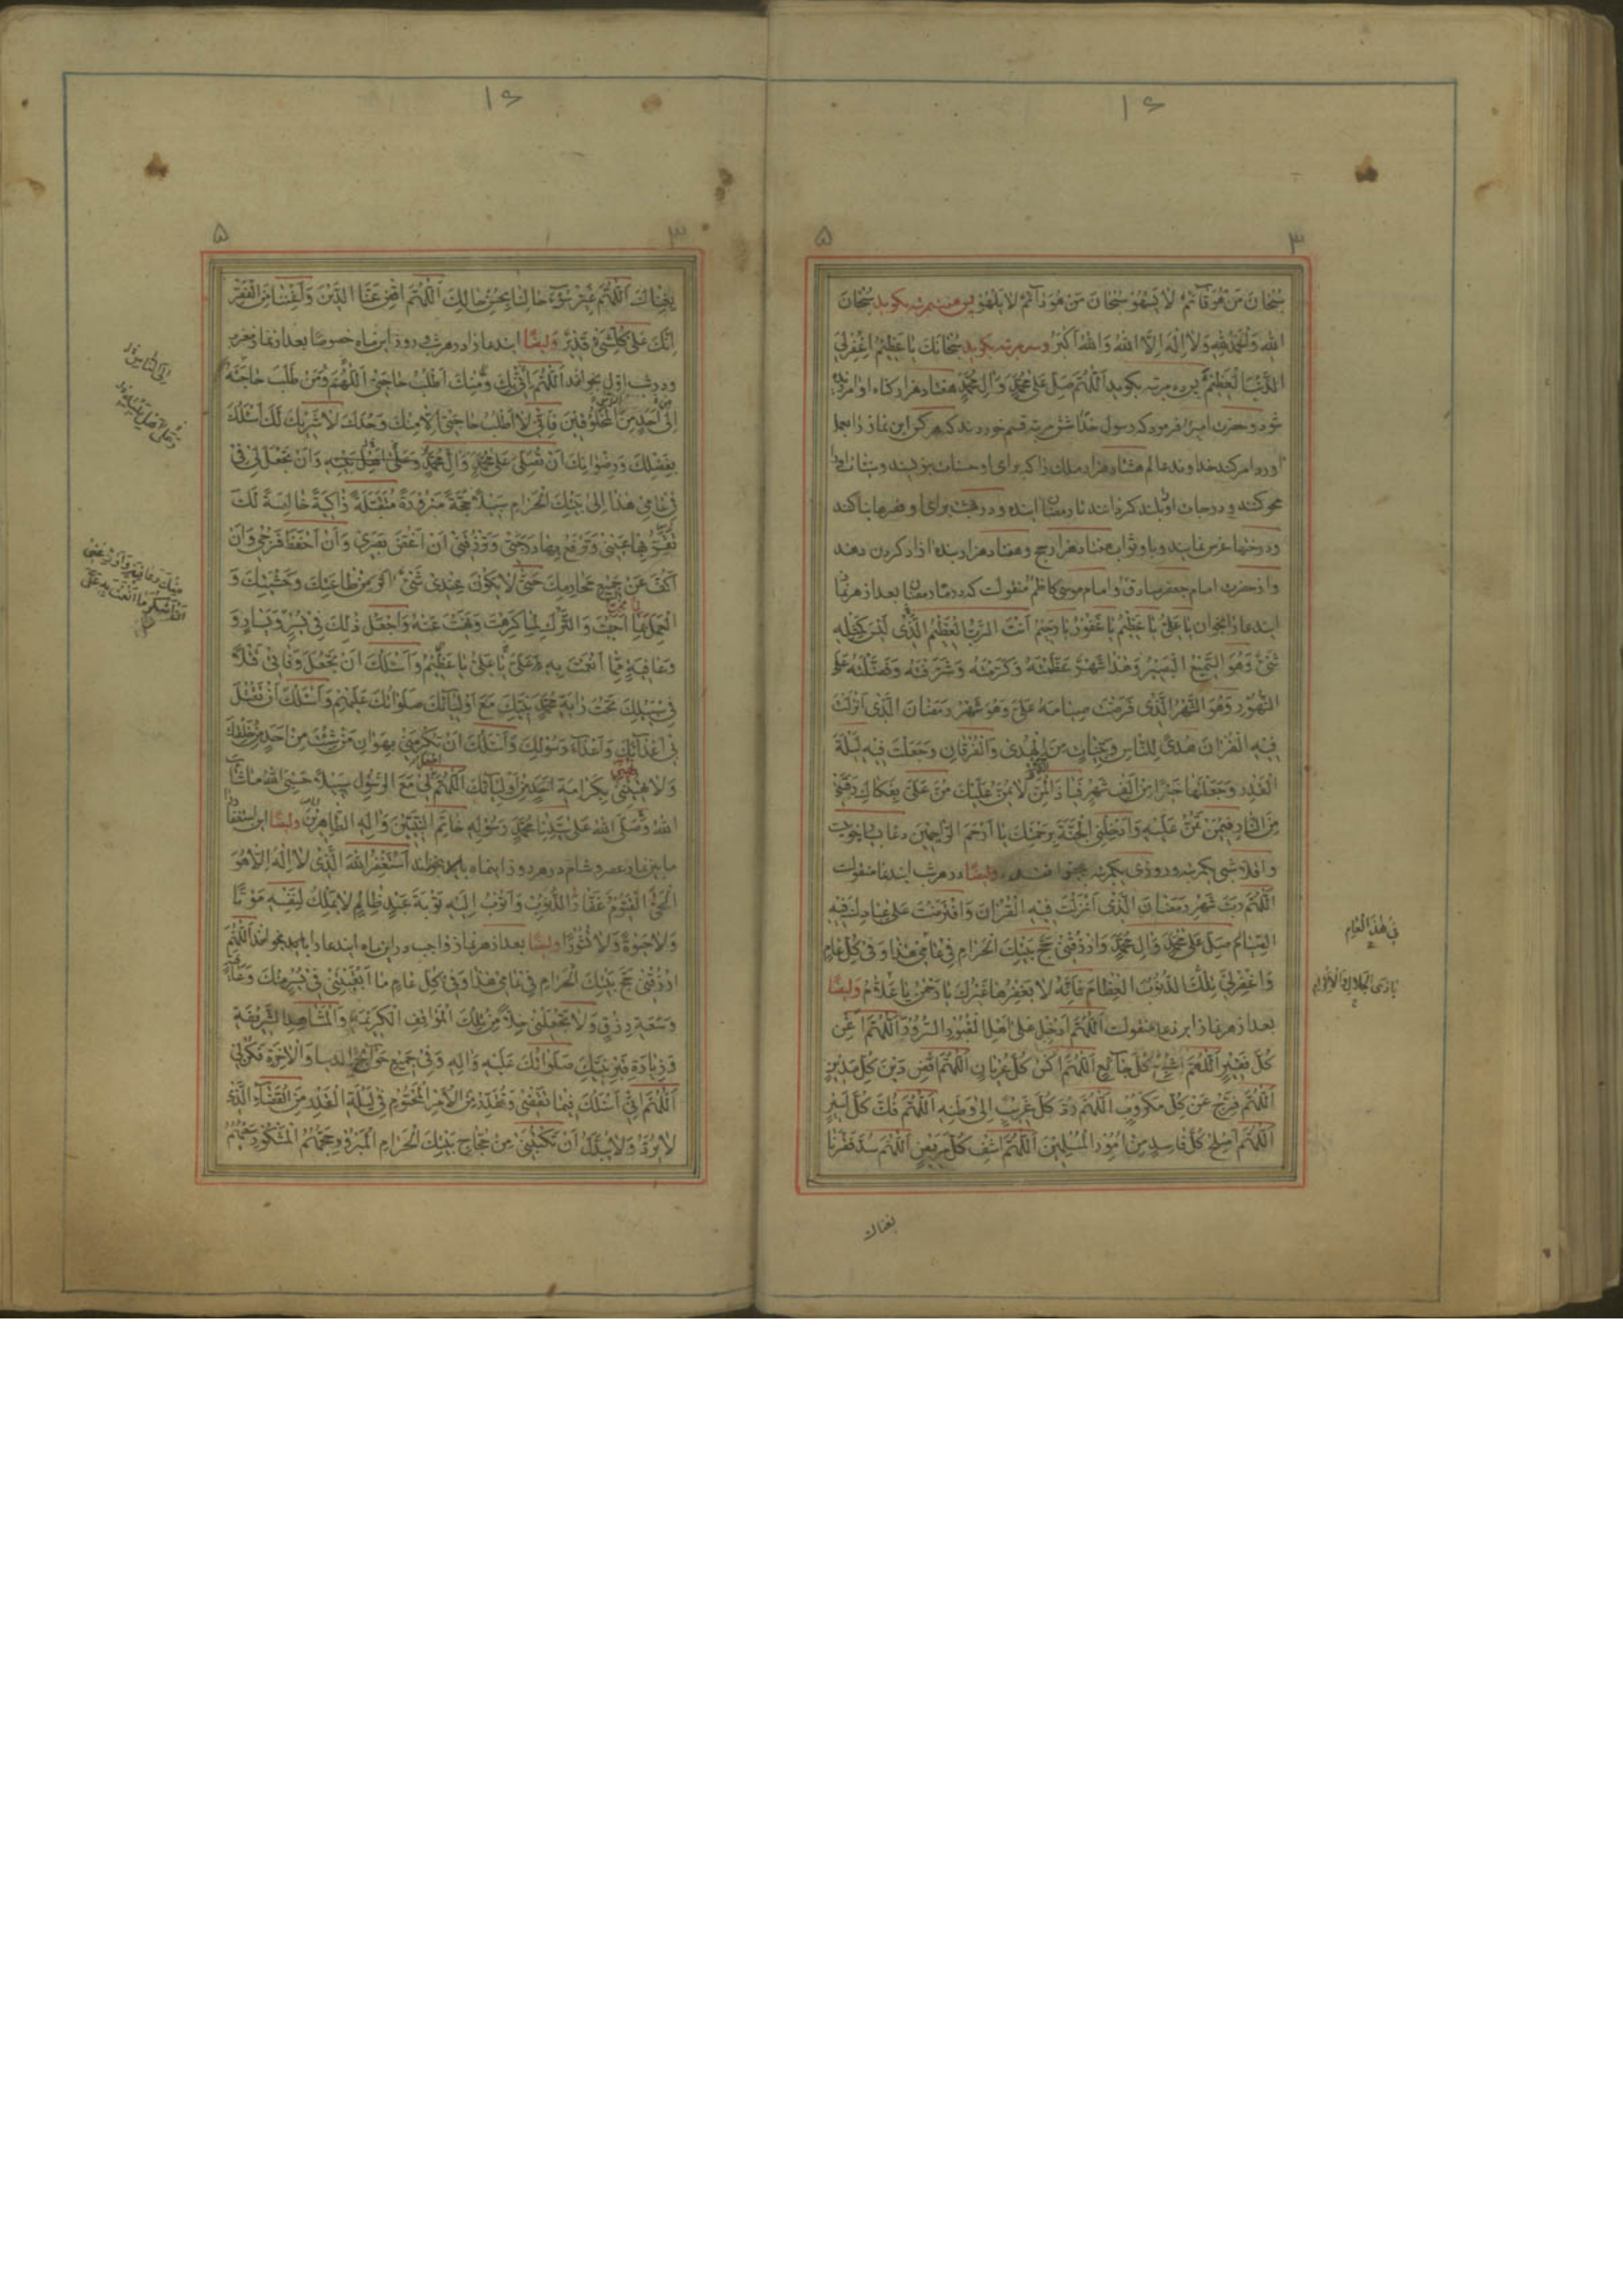 ۱۶
۳ ۵
سُبْحَانَ مَنْ هُوَ قَائِمٌ لَا يَسْهُو سُبْحَانَ مَنْ هُوَ دَائِمٌ لَا يَلْهُو پس هفت مرتبه بگوید سُبْحَانَ
اللهِ وَالْحَمْدُ لِلّٰهِ وَلَا اِلٰهَ اِلَّا اللهُ وَاللهُ اَكْبَرُ و سه مرتبه بگوید سُبْحَانَكَ يَا عَظِيمُ اغْفِرْ لِيَ
الذَّنْبَ الْعَظِيمَ پس ده مرتبه بگوید اَللّٰهُمَّ صَلِّ عَلٰى مُحَمَّدٍ وَآلِ مُحَمَّدٍ هفتاد هزار گناه او امرزیده
شود و حضرت امیر فرمود که رسول خدا شش مرتبه قسم خوردند که هر کس این نماز را بجا
اورد امر کند خداوند عالم هشتاد هزار ملک را که برای او حسنات بنویسند و
محو کنند و درجات او بلند کرده اند تا رمضان اینده و در بهشت برای او قصرها بنا کند
و درختها غرس نمایند و باو ثواب هفتاد هزار حج و هفتاد هزار بنده ازاد کردن دهند
و از حضرت امام جعفر صادق و امام موسی کاظم منقولست که در ماه رمضان بعد از هر نماز
ایندعا را بخوان يَا عَلِيُّ يَا عَظِيمُ يَا غَفُورُ يَا رَحِيمُ اَنْتَ الرَّبُّ الْعَظِيمُ الَّذِي لَيْسَ كَمِثْلِهِ
شَيْءٌ وَهُوَ السَّمِيعُ الْبَصِيرُ وَهٰذَا شَهْرٌ عَظَّمْتَهُ وَكَرَّمْتَهُ وَشَرَّفْتَهُ وَفَضَّلْتَهُ عَلَى
الشُّهُورِ وَهُوَ الشَّهْرُ الَّذِي فَرَضْتَ صِيَامَهُ عَلَيَّ وَهُوَ شَهْرُ رَمَضَانَ الَّذِي اَنْزَلْتَ
فِيهِ الْقُرْآنَ هُدًى لِلنَّاسِ وَبَيِّنَاتٍ مِنَ الْهُدٰى وَالْفُرْقَانِ وَجَعَلْتَ فِيهِ لَيْلَةَ
الْقَدْرِ وَجَعَلْتَهَا خَيْرًا مِنْ اَلْفِ شَهْرٍ فَيَا ذَا الْمَنِّ لَا يُمَنُّ عَلَيْكَ مُنَّ عَلَيَّ بِفَكَاكِ رَقَبَتِي
مِنَ النَّارِ فِيمَنْ تَمُنُّ عَلَيْهِ وَاَدْخِلْنِي الْجَنَّةَ بِرَحْمَتِكَ يَا اَرْحَمَ الرَّاحِمِينَ
و اقلا شبی یکمرتبه و روزی یکمرتبه بخوانند وایضًا در هر شب ایندعا منقولست
اَللّٰهُمَّ رَبَّ شَهْرِ رَمَضَانَ الَّذِي اَنْزَلْتَ فِيهِ الْقُرْآنَ وَافْتَرَضْتَ عَلٰى عِبَادِكَ فِيهِ
الصِّيَامَ صَلِّ عَلٰى مُحَمَّدٍ وَآلِ مُحَمَّدٍ وَارْزُقْنِي حَجَّ بَيْتِكَ الْحَرَامِ فِي عَامِي هٰذَا وَفِي كُلِّ عَامٍ
فی هٰذَا الْعَامِ
وَاغْفِرْ لِي تِلْكَ الذُّنُوبَ الْعِظَامَ فَاِنَّهُ لَا يَغْفِرُهَا غَيْرُكَ يَا رَحْمٰنُ يَا عَلَّامُ وایضًا
يَا ذَا الْجَلَالِ وَالْاِكْرَامِ
بعد از هر نماز این دعا منقولست اَللّٰهُمَّ اَدْخِلْ عَلٰى اَهْلِ الْقُبُورِ السُّرُورَ اَللّٰهُمَّ اَغْنِ
كُلَّ فَقِيرٍ اَللّٰهُمَّ اَشْبِعْ كُلَّ جَائِعٍ اَللّٰهُمَّ اكْسُ كُلَّ عُرْيَانٍ اَللّٰهُمَّ اقْضِ دَيْنَ كُلِّ مَدِينٍ
اَللّٰهُمَّ فَرِّجْ عَنْ كُلِّ مَكْرُوبٍ اَللّٰهُمَّ رُدَّ كُلَّ غَرِيبٍ اِلٰى وَطَنِهِ اَللّٰهُمَّ فُكَّ كُلَّ اَسِيرٍ
اَللّٰهُمَّ اَصْلِحْ كُلَّ فَاسِدٍ مِنْ اُمُورِ الْمُسْلِمِينَ اَللّٰهُمَّ اشْفِ كُلَّ مَرِيضٍ اَللّٰهُمَّ سُدَّ فَقْرَنَا
بغناك
۱۶
۳ ۵
بِغِنَاكَ اَللّٰهُمَّ غَيِّرْ سُوءَ حَالِنَا بِحُسْنِ حَالِكَ اَللّٰهُمَّ اقْضِ عَنَّا الدَّيْنَ وَاَغْنِنَا مِنَ الْفَقْرِ
اِنَّكَ عَلٰى كُلِّ شَيْءٍ قَدِيرٌ وایضًا ایندعا را در هر شب و روز این ماه خصوصًا بعد از نماز مغرب
و در شب اول بخوانند اَللّٰهُمَّ اِنِّي بِكَ وَمِنْكَ اَطْلُبُ حَاجَتِي اَللّٰهُمَّ وَمَنْ طَلَبَ حَاجَتَهُ
اِلٰى اَحَدٍ مِنَ الْمَخْلُوقِينَ فَاِنِّي لَا اَطْلُبُ حَاجَتِي اِلَّا مِنْكَ وَحْدَكَ لَا شَرِيكَ لَكَ اَسْئَلُكَ
بِفَضْلِكَ وَرِضْوَانِكَ اَنْ تُصَلِّيَ عَلٰى مُحَمَّدٍ وَآلِ مُحَمَّدٍ وَعَلٰى اَهْلِ بَيْتِهِ وَاَنْ تَجْعَلَ لِي فِي
فِي عَامِي هٰذَا اِلٰى بَيْتِكَ الْحَرَامِ سَبِيلًا حِجَّةً مَبْرُورَةً مُتَقَبَّلَةً زَاكِيَةً خَالِصَةً لَكَ
تَقَرُّ بِهَا عَيْنِي وَتَرْفَعُ بِهَا دَرَجَتِي وَتَرْزُقَنِي اَنْ اَغُضَّ بَصَرِي وَاَنْ اَحْفَظَ فَرْجِي وَاَنْ
اَكُفَّ عَنْ جَمِيعِ مَحَارِمِكَ حَتّٰى لَا يَكُونَ عِنْدِي شَيْءٌ اٰثَرَ مِنْ طَاعَتِكَ وَخَشْيَتِكَ وَ
الْعَمَلِ بِمَا اَحْبَبْتَ وَالتَّرْكِ لِمَا كَرِهْتَ وَنَهَيْتَ عَنْهُ وَاجْعَلْ ذٰلِكَ فِي يُسْرٍ وَيَسَارٍ وَ
وَعَافِيَةٍ مِمَّا اَنْعَمْتَ بِهِ عَلَيَّ يَا عَلِيُّ يَا عَظِيمُ وَاَسْئَلُكَ اَنْ تَجْعَلَ وَفَاتِي قَتْلًا
فِي سَبِيلِكَ تَحْتَ رَايَةِ مُحَمَّدٍ نَبِيِّكَ مَعَ اَوْلِيَائِكَ صَلَوَاتُكَ عَلَيْهِمْ وَاَسْئَلُكَ اَنْ تَقْتُلَ
بِي اَعْدَائَكَ وَاَعْدَاءَ رَسُولِكَ وَاَسْئَلُكَ اَنْ تُكْرِمَنِي بِهَوَانِ مَنْ شِئْتَ مِنْ اَحَدٍ مِنْ خَلْقِكَ
وَلَا تُهِنِّي بِكَرَامَةِ اَحَدٍ مِنْ اَوْلِيَائِكَ اَللّٰهُمَّ لِي مَعَ الرَّسُولِ سَبِيلًا حَسْبِيَ اللهُ مَا شَاءَ
اللهُ وَصَلَّى اللهُ عَلٰى سَيِّدِنَا مُحَمَّدٍ رَسُولِهِ خَاتَمِ النَّبِيِّينَ وَآلِهِ الطَّاهِرِينَ وایضًا این استغفار را
ما بین نماز عصر و شام در هر روز اینماه بخوانند اَسْتَغْفِرُ اللهَ الَّذِي لَا اِلٰهَ اِلَّا هُوَ
الْحَيُّ الْقَيُّومُ غَفَّارُ الذُّنُوبِ وَاَتُوبُ اِلَيْهِ تَوْبَةَ عَبْدٍ ظَالِمٍ لَا يَمْلِكُ لِنَفْسِهِ مَوْتًا
وَلَا حَيٰوةً وَلَا نُشُورًا وایضًا بعد از هر نماز واجب در این ماه ایندعا را باید بخوانند اَللّٰهُمَّ
ارْزُقْنِي حَجَّ بَيْتِكَ الْحَرَامِ فِي عَامِي هٰذَا وَفِي كُلِّ عَامٍ مَا اَبْقَيْتَنِي فِي يُسْرٍ مِنْكَ وَعَافِيَةٍ
وَسَعَةِ رِزْقٍ وَلَا تُخْلِنِي مِنْ تِلْكَ الْمَوَاقِفِ الْكَرِيمَةِ وَالْمَشَاهِدِ الشَّرِيفَةِ
وَزِيَارَةِ قَبْرِ نَبِيِّكَ صَلَوَاتُكَ عَلَيْهِ وَآلِهِ وَفِي جَمِيعِ حَوَائِجِ الدُّنْيَا وَالْآخِرَةِ فَكُنْ لِي
اَللّٰهُمَّ اِنِّي اَسْئَلُكَ فِيمَا تَقْضِي وَتُقَدِّرُ مِنَ الْاَمْرِ الْمَحْتُومِ فِي لَيْلَةِ الْقَدْرِ مِنَ الْقَضَاءِ الَّذِي
لَا يُرَدُّ وَلَا يُبَدَّلُ اَنْ تَكْتُبَنِي مِنْ حُجَّاجِ بَيْتِكَ الْحَرَامِ الْمَبْرُورِ حَجُّهُمُ الْمَشْكُورِ سَعْيُهُمُ